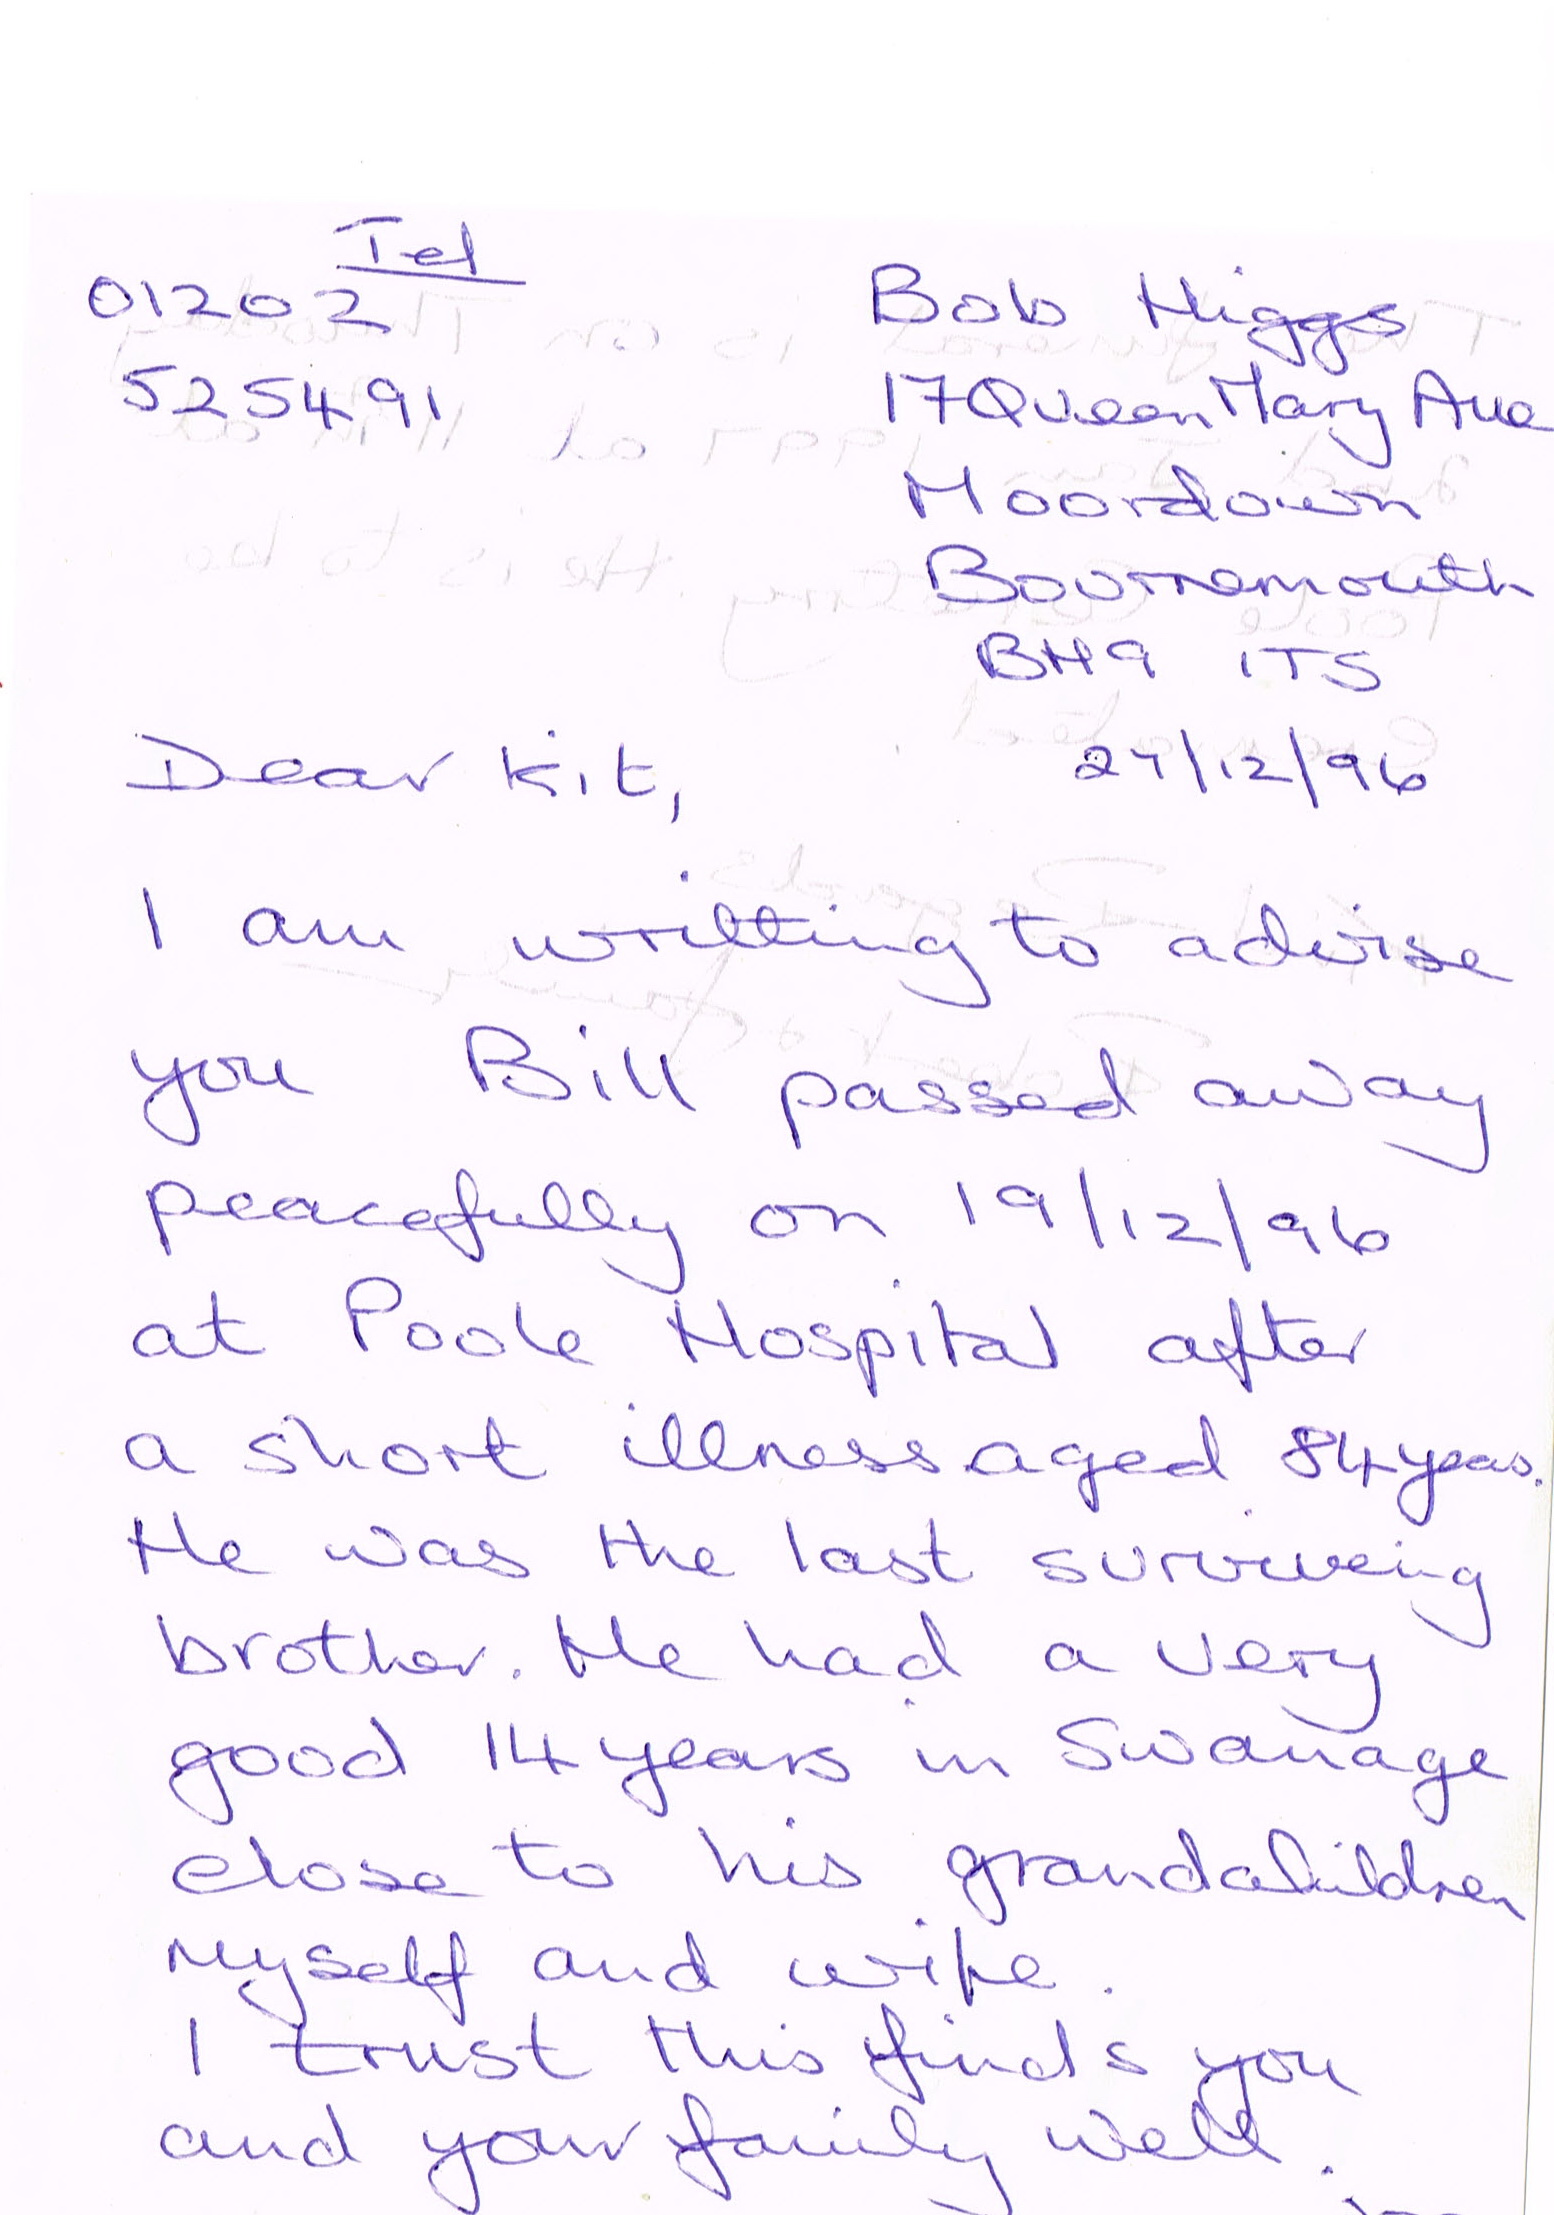 Tel
01202
525491
Bob Higgs
17 Queen Mary Ave
Moordown
Bournemouth
BH9 1TS
Dear Kit,
27/12/96
I am writting to advise
you Bill passed away
peacefully on 19/12/96
at Poole Hospital after
a short illness aged 84 years.
He was the last surviveing
brother. He had a very
good 14 years in Swanage
close to his grandchildren
myself and wife.
I trust this finds you
and your family well.